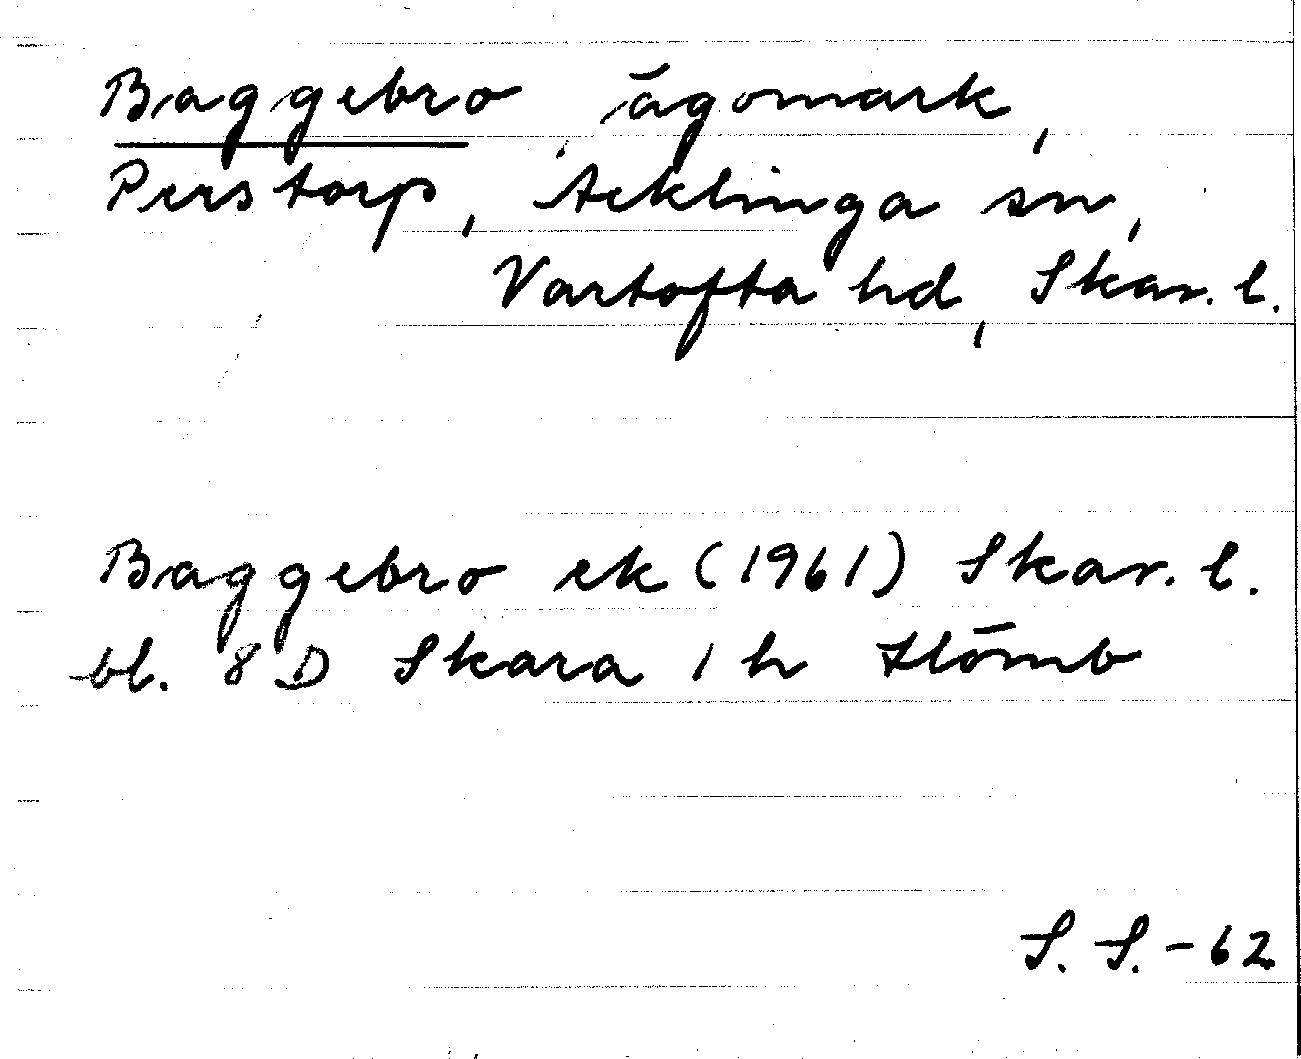 Baggebro, ägomark,
Perstorp, Acklinga sn,
Vartofta hd, Skar. l.
Baggebro ek (1961) Skar. l.
bl. 8 D Skara 1 h Hömb
S. S. - 62